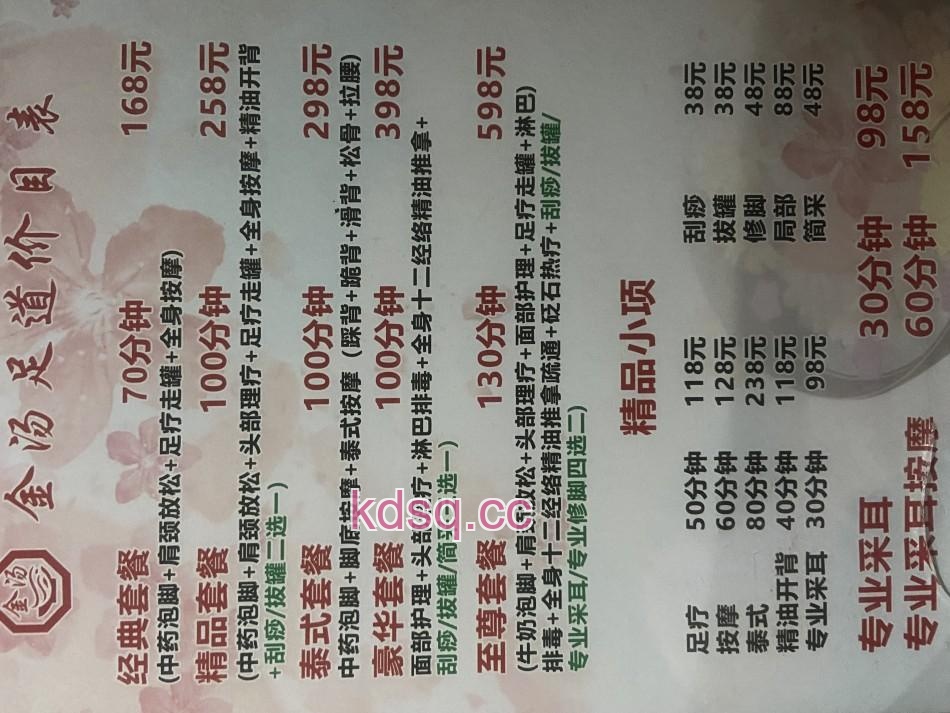 金汤
金汤足道价目表
经典套餐 70分钟 168元
(中药泡脚+肩颈放松+足疗走罐+全身按摩)
精品套餐 100分钟 258元
(中药泡脚+肩颈放松+头部理疗+足疗走罐+全身按摩+精油开背
+刮痧/拔罐二选一)
泰式套餐 100分钟 298元
中药泡脚+脚底按摩+泰式按摩 (踩背+跪背+滑背+松骨+拉腰)
豪华套餐 100分钟 398元
面部护理+头部理疗+淋巴排毒+全身十二经络精油推拿+
刮痧/拔罐/简采 选一)
至尊套餐 130分钟 598元
(牛奶泡脚+肩颈放松+头部理疗+面部护理+足疗走罐+淋巴)
排毒+全身十二经络精油推拿疏通+砭石热疗+刮痧/拔罐/
专业采耳/专业修脚四选二)
精品小项
足疗 50分钟 118元 刮痧 38元
按摩 60分钟 128元 拔罐 38元
泰式 80分钟 238元 修脚 48元
精油开背 40分钟 118元 局部 88元
专业采耳 30分钟 98元 简采 48元
专业采耳 30分钟 98元
专业采耳按摩 60分钟 158元
kdsq.cc